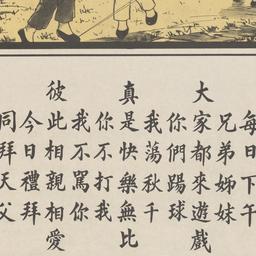 每日下午
兄弟姊妹
大家都來遊戲
你們踢球
我蕩秋千
真是快樂無比
你不打我
我不罵你
彼此相親相愛
今日禮拜
同拜天父